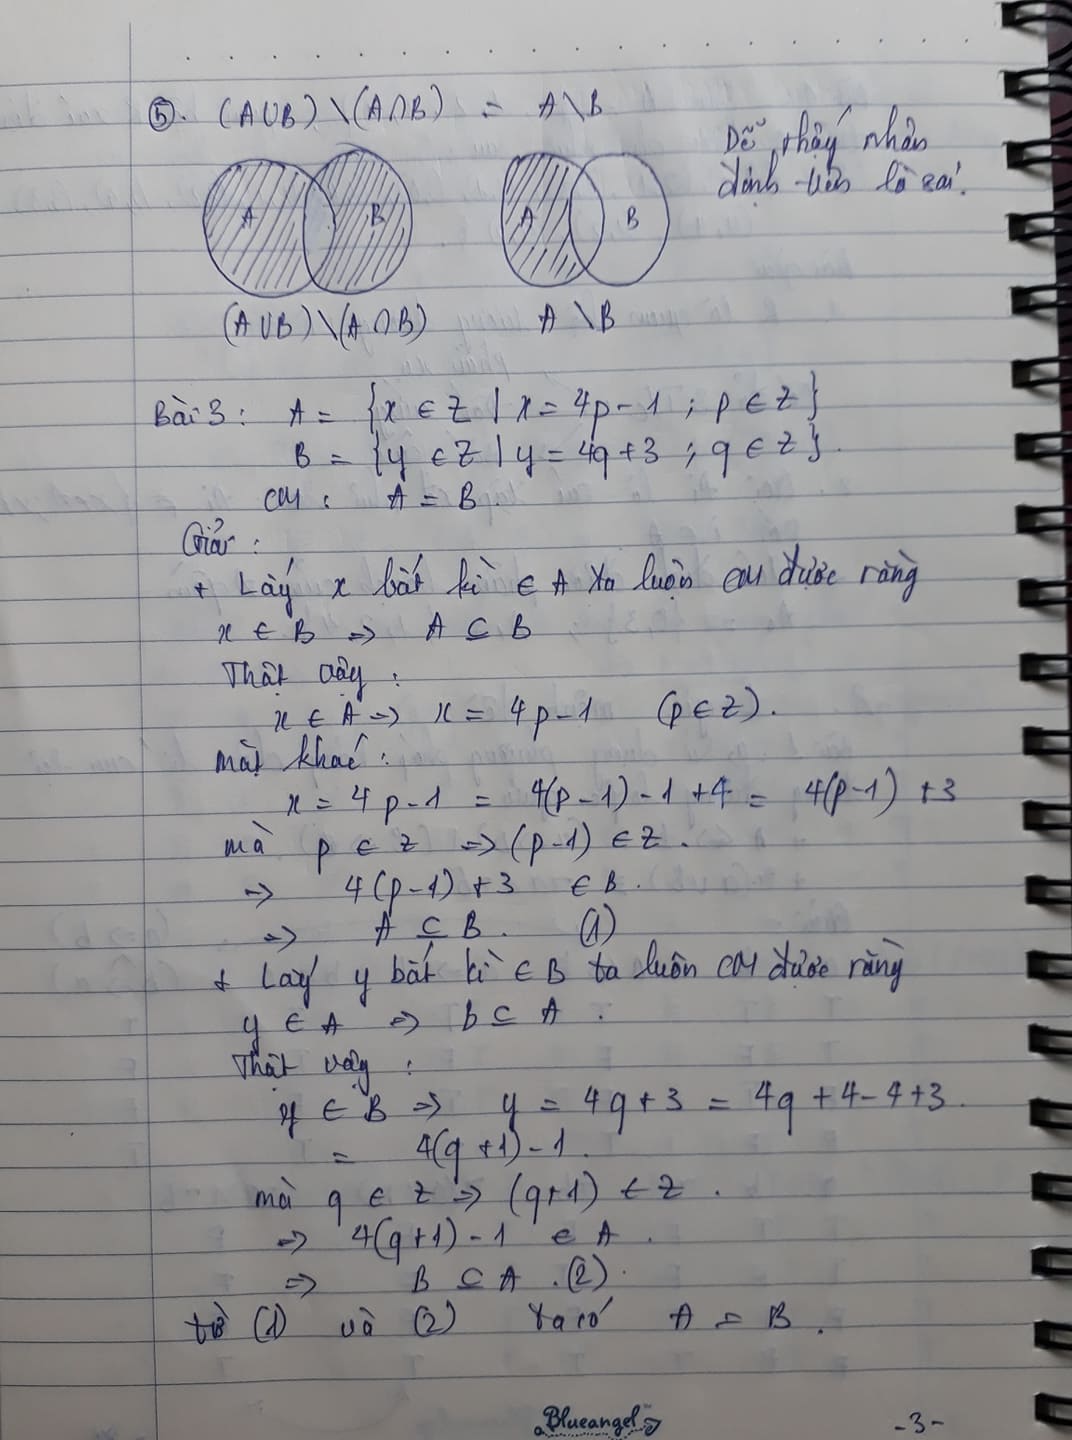 ⑤. (A∪B) \ (A∩B) = A\B
Dễ thấy nhận
định trên là sai.
A B A B
(A∪B) \ (A∩B) A \ B
Bài 3: A = {x ∈ Z | x = 4p-1 ; p ∈ Z}
B = {y ∈ Z | y = 4q+3 ; q ∈ Z}.
CM : A = B.
Giải :
+ Lấy x bất kì ∈ A ta luôn CM được rằng
x ∈ B => A ⊆ B
Thật vậy :
x ∈ A => x = 4p-1 (p ∈ Z).
mặt khác :
x = 4p-1 = 4(p-1)-1+4 = 4(p-1)+3
mà p ∈ Z => (p-1) ∈ Z.
=> 4(p-1)+3 ∈ B.
=> A ⊆ B. (1)
+ Lấy y bất kì ∈ B ta luôn CM được rằng
y ∈ A => b ⊆ A.
Thật vậy :
y ∈ B => y = 4q+3 = 4q+4-4+3.
= 4(q+1)-1.
mà q ∈ Z => (q+1) ∈ Z.
=> 4(q+1)-1 ∈ A.
=> B ⊆ A. (2).
từ (1) và (2) ta có A = B.
Blueangel
-3-